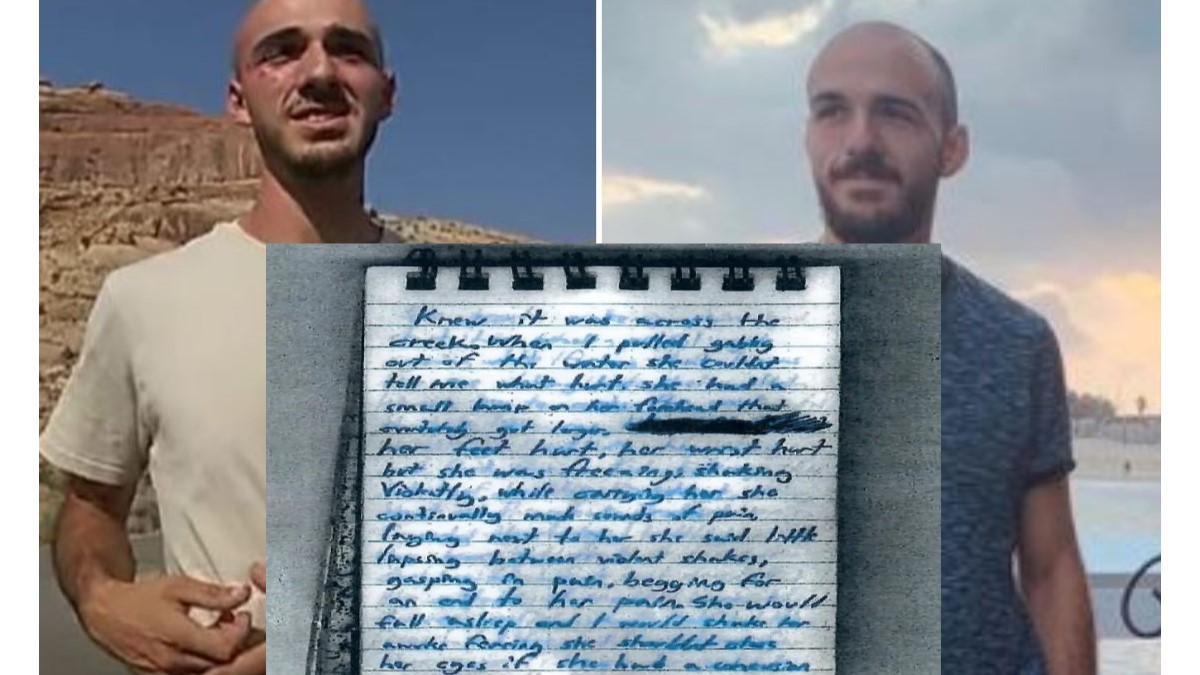 Knew it was across the
creek. When I pulled gabby
out of the water she couldnt
tell me what hurt. she had a
small bump on her forehead that
eventually got larger.
her feet hurt, her wrist hurt
but she was freezing, shaking
Violently, while carrying her she
continually made sounds of pain,
laying next to her she said little
lapsing between violent shakes,
gasping in pain, begging for
an end to her pain. She would
fall asleep and I would shake her
awake fearing she shouldnt close
her eyes if she had a concussion